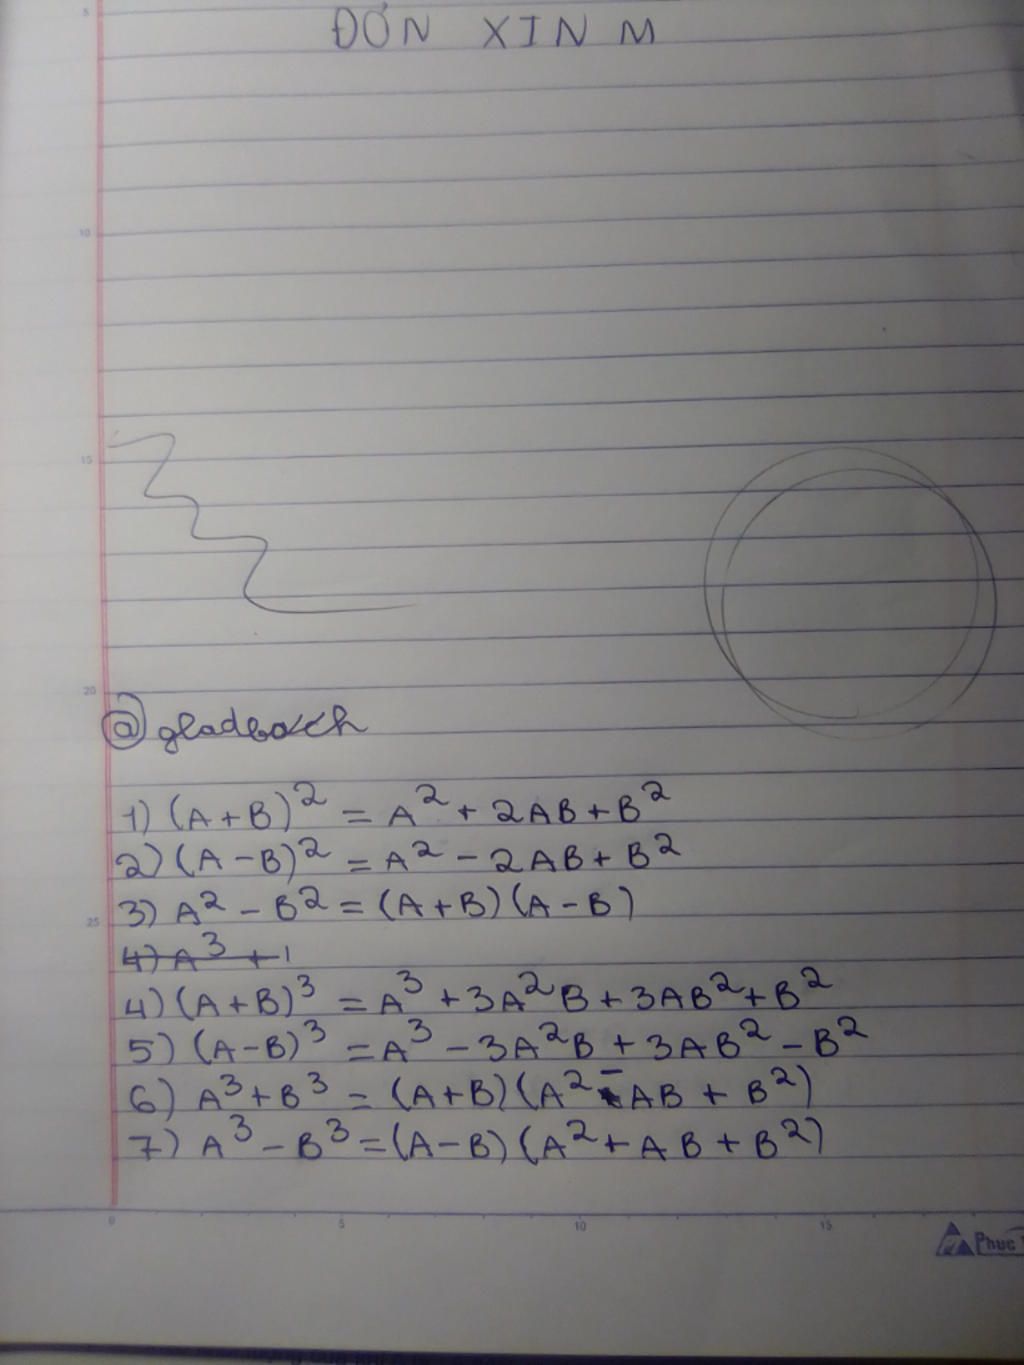 5
ĐƠN XIN M
10
15
20
@gladbach
1) (A+B)² = A² + 2AB + B²
2) (A-B)² = A² - 2AB + B²
3) A² - B² = (A+B)(A-B)
25
4) A³ + 1
4) (A+B)³ = A³ + 3A²B + 3AB² + B²
5) (A-B)³ = A³ - 3A²B + 3AB² - B²
6) A³ + B³ = (A+B)(A² - AB + B²)
7) A³ - B³ = (A-B)(A² + AB + B²)
0 5 10 15
Phuc